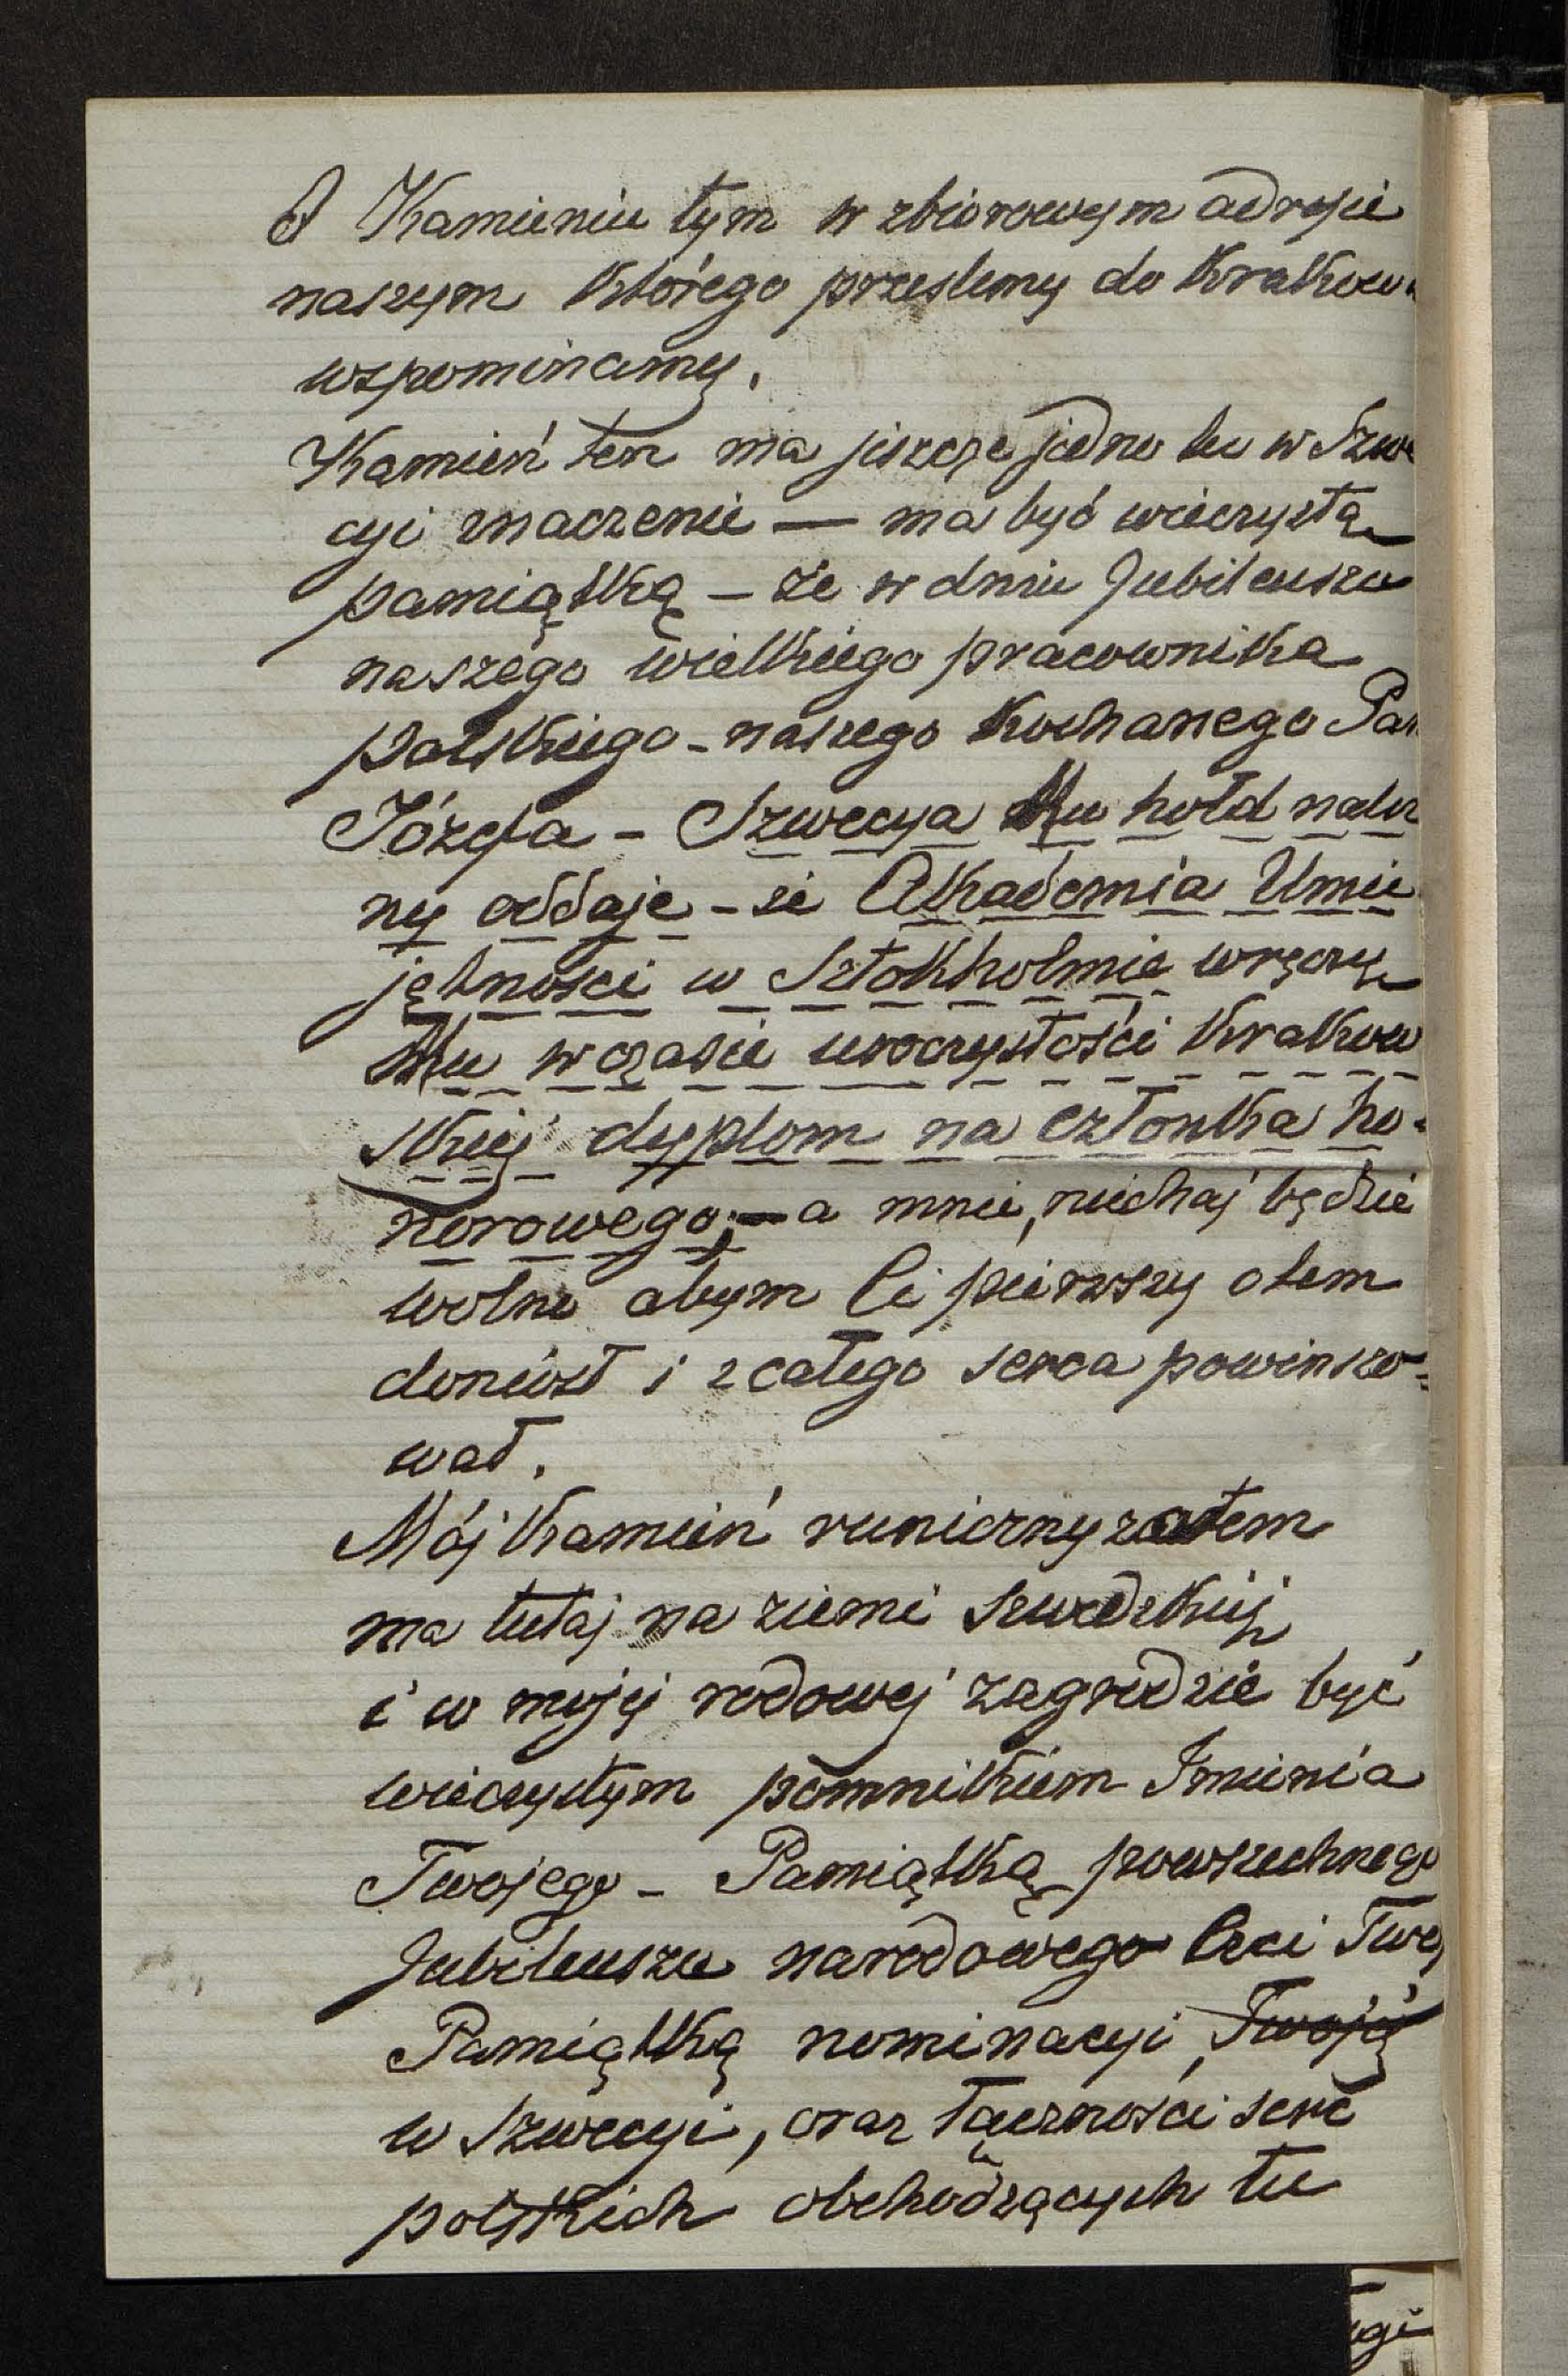 O Kamieniu tym w zbiorowym adresie
naszym którego prześlemy do Krakow
wspominamy.
Kamień ten ma jeszcze jedno tu w Szwe
cyi znaczenie — ma być wieczystą
pamiątką – że w dniu Jubileuszu
naszego wielkiego pracownika
polskiego – naszego Kochanego Pan
Józefa – Szwecya Mu hołd
ny oddaje – że Akademia Umie
jętności w Sztokholmie wręczy
Mu w czasie uroczystości Krakow
skiej dyplom na członka ho-
norowego; — a mnie, niechaj będzie
wolno abym Ci pierwszy otem
doniósł i z całego serca powinszo=
wał.
Mój Kamień runiczny zatem
ma tutaj na ziemi szwedzkiej
i w mojej rodowej zagrodzie być
wieczystym pomnikiem Imienia
Twojego – Pamiątką powszechnego
Jubileuszu narodowego Czci Twej
Pamiątką nominacyi Twojej
w Szwecyi, oraz łączności serc
polskich obchodzących tu
ugi